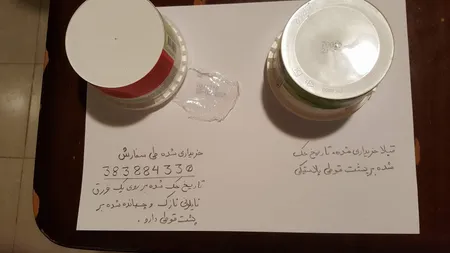 خریداری شده طی سفارش
383884330
تاریخ حک شده بر روی یک ورق
نایلونی نازک و چسبانده شده بر
پشت قوطی دارد.
قبلا خریداری شده، تاریخ حک
شده بر پشت قوطی پلاستیکی